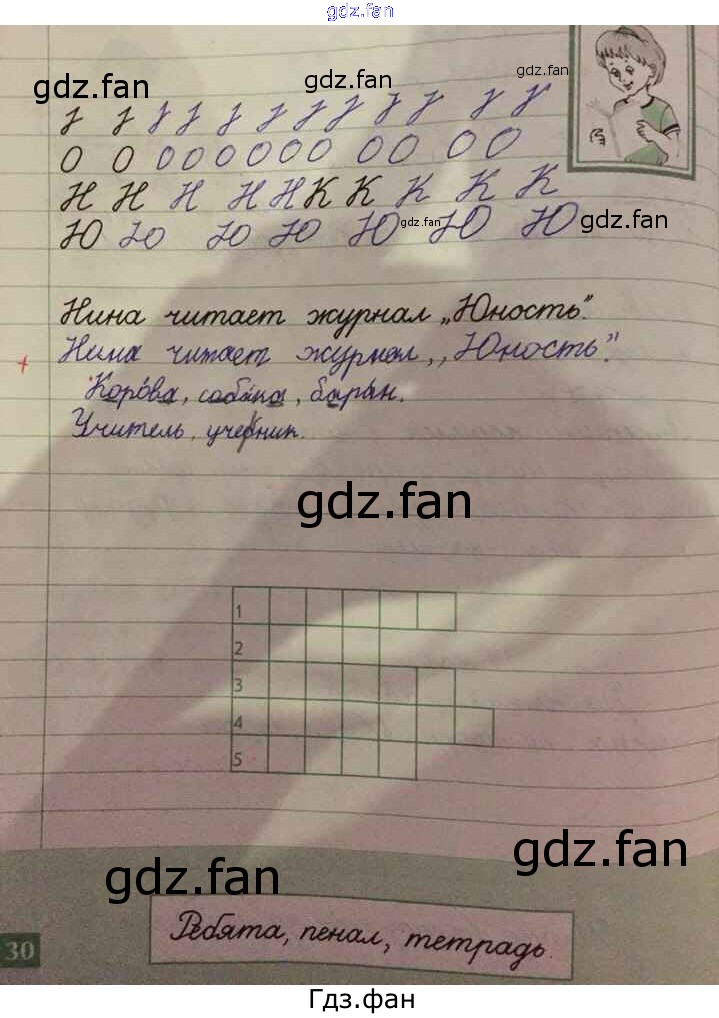 gdz.fan
gdz.fan gdz.fan gdz.fan
О О О О О О О О О О О О
Н Н Н Н Н К К К К К
Ю Ю Ю Ю Ю gdz.fan Ю Ю gdz.fan
Нина читает журнал „Юность".
+ Нина читает журнал „Юность".
Корова, собака, баран.
Учитель, учебник.
gdz.fan
1
2
3
4
5
gdz.fan
gdz.fan
Ребята, пенал, тетрадь.
30
Гдз.фан